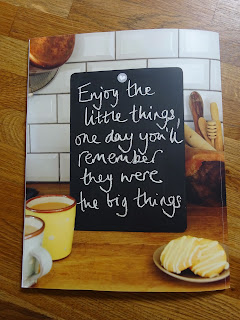 Enjoy the
little things,
one day you'll
remember
they were
the big things